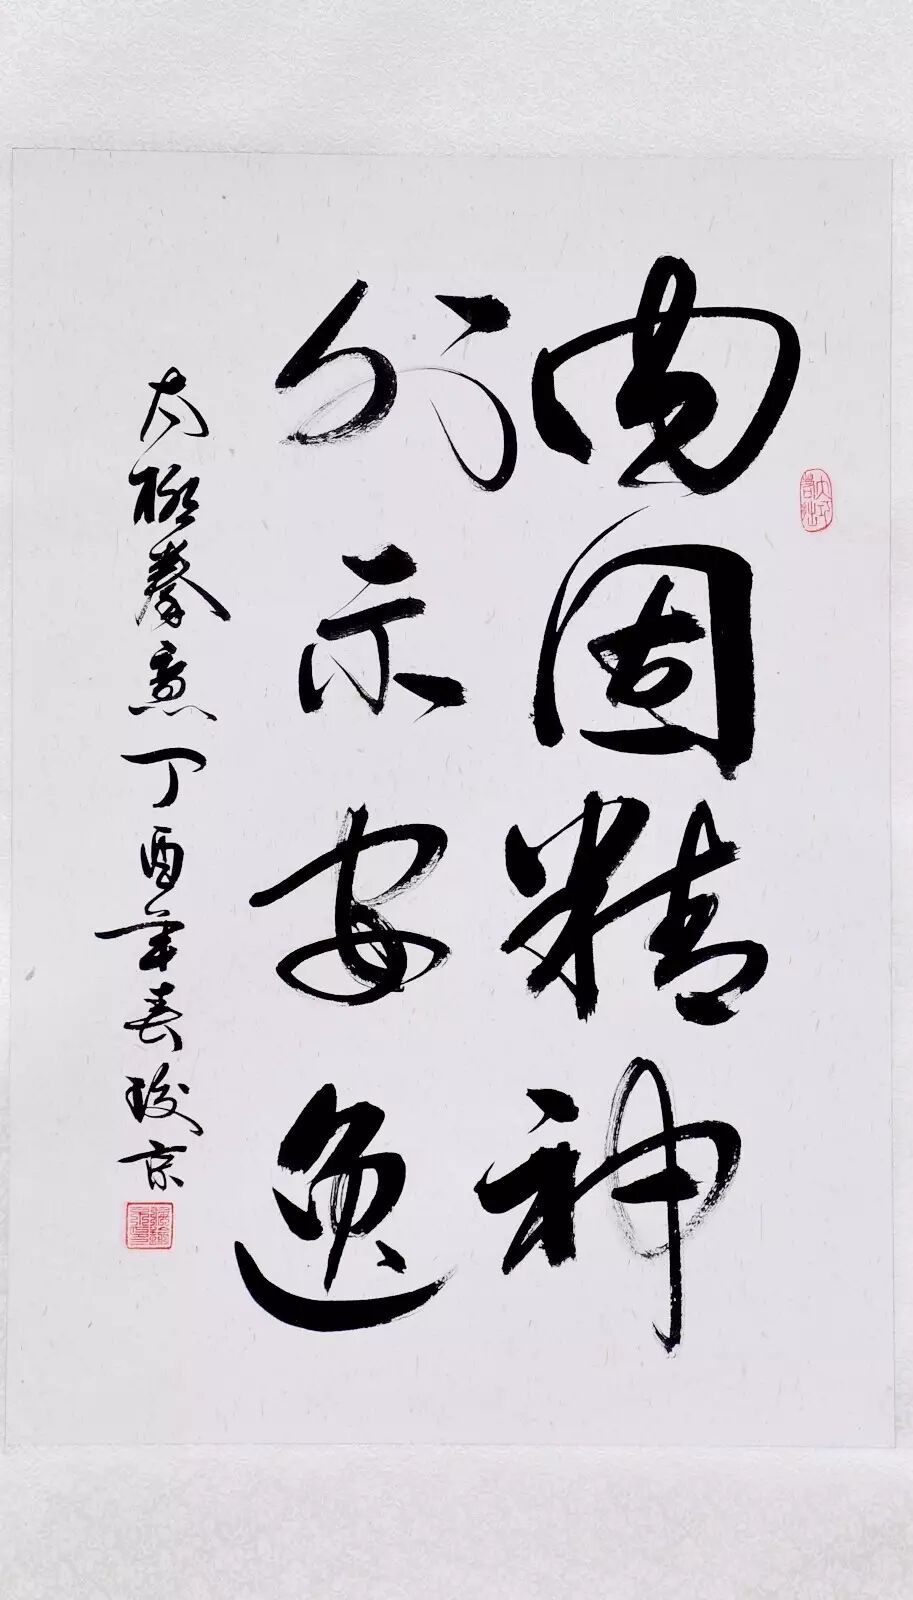 内固精神
外示安逸
太极拳意丁酉年春珍京